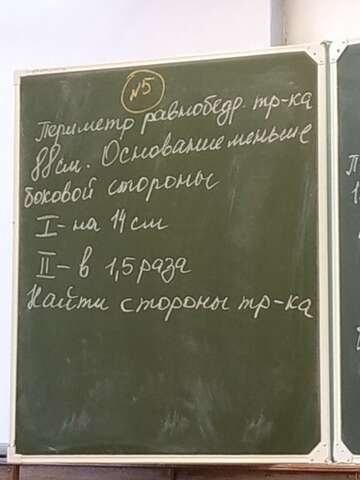 №5
Периметр равнобедр. тр-ка
88см. Основание меньше
боковой стороны
I - на 14 см
II - в 1,5 раза
Найти стороны тр-ка